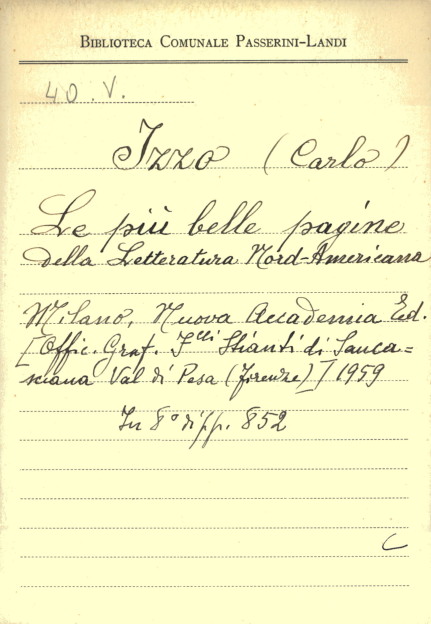 BIBLIOTECA COMUNALE PASSERINI-LANDI
40.V.
Izzo (Carlo)
Le più belle pagine
della Letteratura Nord-Americana
Milano, Nuova Accademia Ed.
[Offic. Graf. F.lli Stianti di Sanca=
sciana Val di Pesa (Firenze)] 1959
In 8° di pp. 852
C